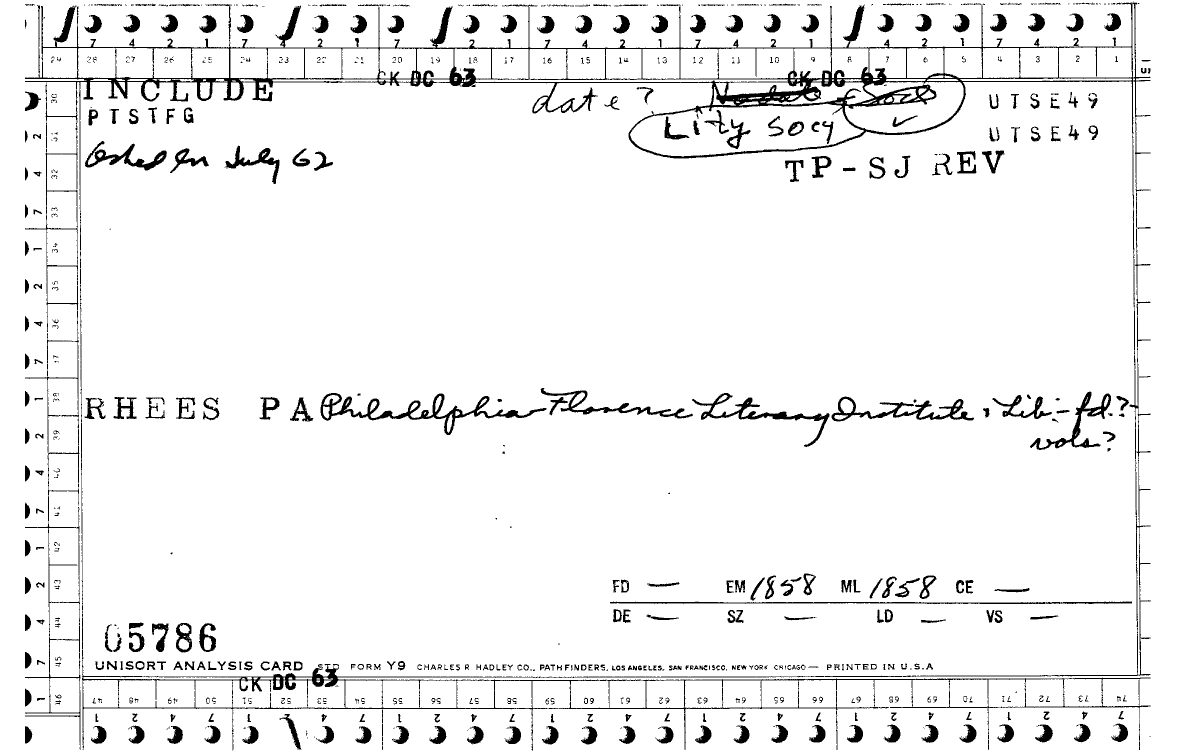 7 4 2 1 7 4 2 1 7 4 2 1 7 4 2 1 7 4 2 1 7 4 2 1 7 4 2 1
29 28 27 26 25 24 23 22 21 20 19 18 17 16 15 14 13 12 11 10 9 8 7 6 5 4 3 2 1
CK DC 63 CK DC 63
INCLUDE date? UTSE49
PTSTFG Lity Socy UTSE49
In July 62 TP-SJ REV
RHEES PA Philadelphia-Florence Literary Institute, Lib.-fd.?-
vols?
FD — EM 1858 ML 1858 CE —
DE — SZ — LD — VS —
05786
UNISORT ANALYSIS CARD STD FORM Y9 CHARLES R HADLEY CO., PATHFINDERS, LOS ANGELES, SAN FRANCISCO, NEW YORK CHICAGO — PRINTED IN U.S.A
CK DC 63
47 48 49 50 51 52 53 54 55 56 57 58 59 60 61 62 63 64 65 66 67 68 69 70 71 72 73 74
1 2 4 7 1 2 4 7 1 2 4 7 1 2 4 7 1 2 4 7 1 2 4 7 1 2 4 7